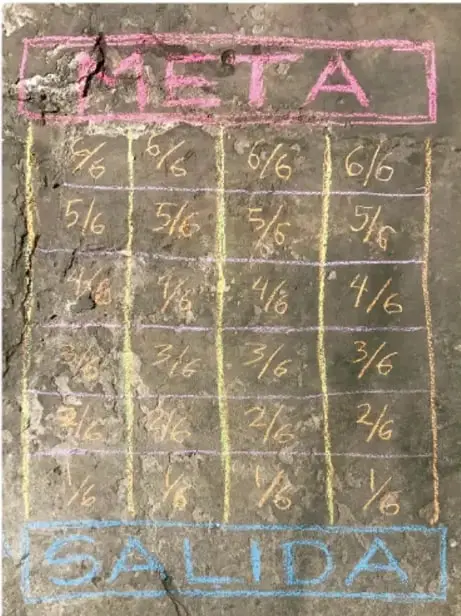 META
6/6 6/6 6/6 6/6
5/6 5/6 5/6 5/6
4/6 4/6 4/6 4/6
3/6 3/6 3/6 3/6
2/6 2/6 2/6 2/6
1/6 1/6 1/6 1/6
SALIDA